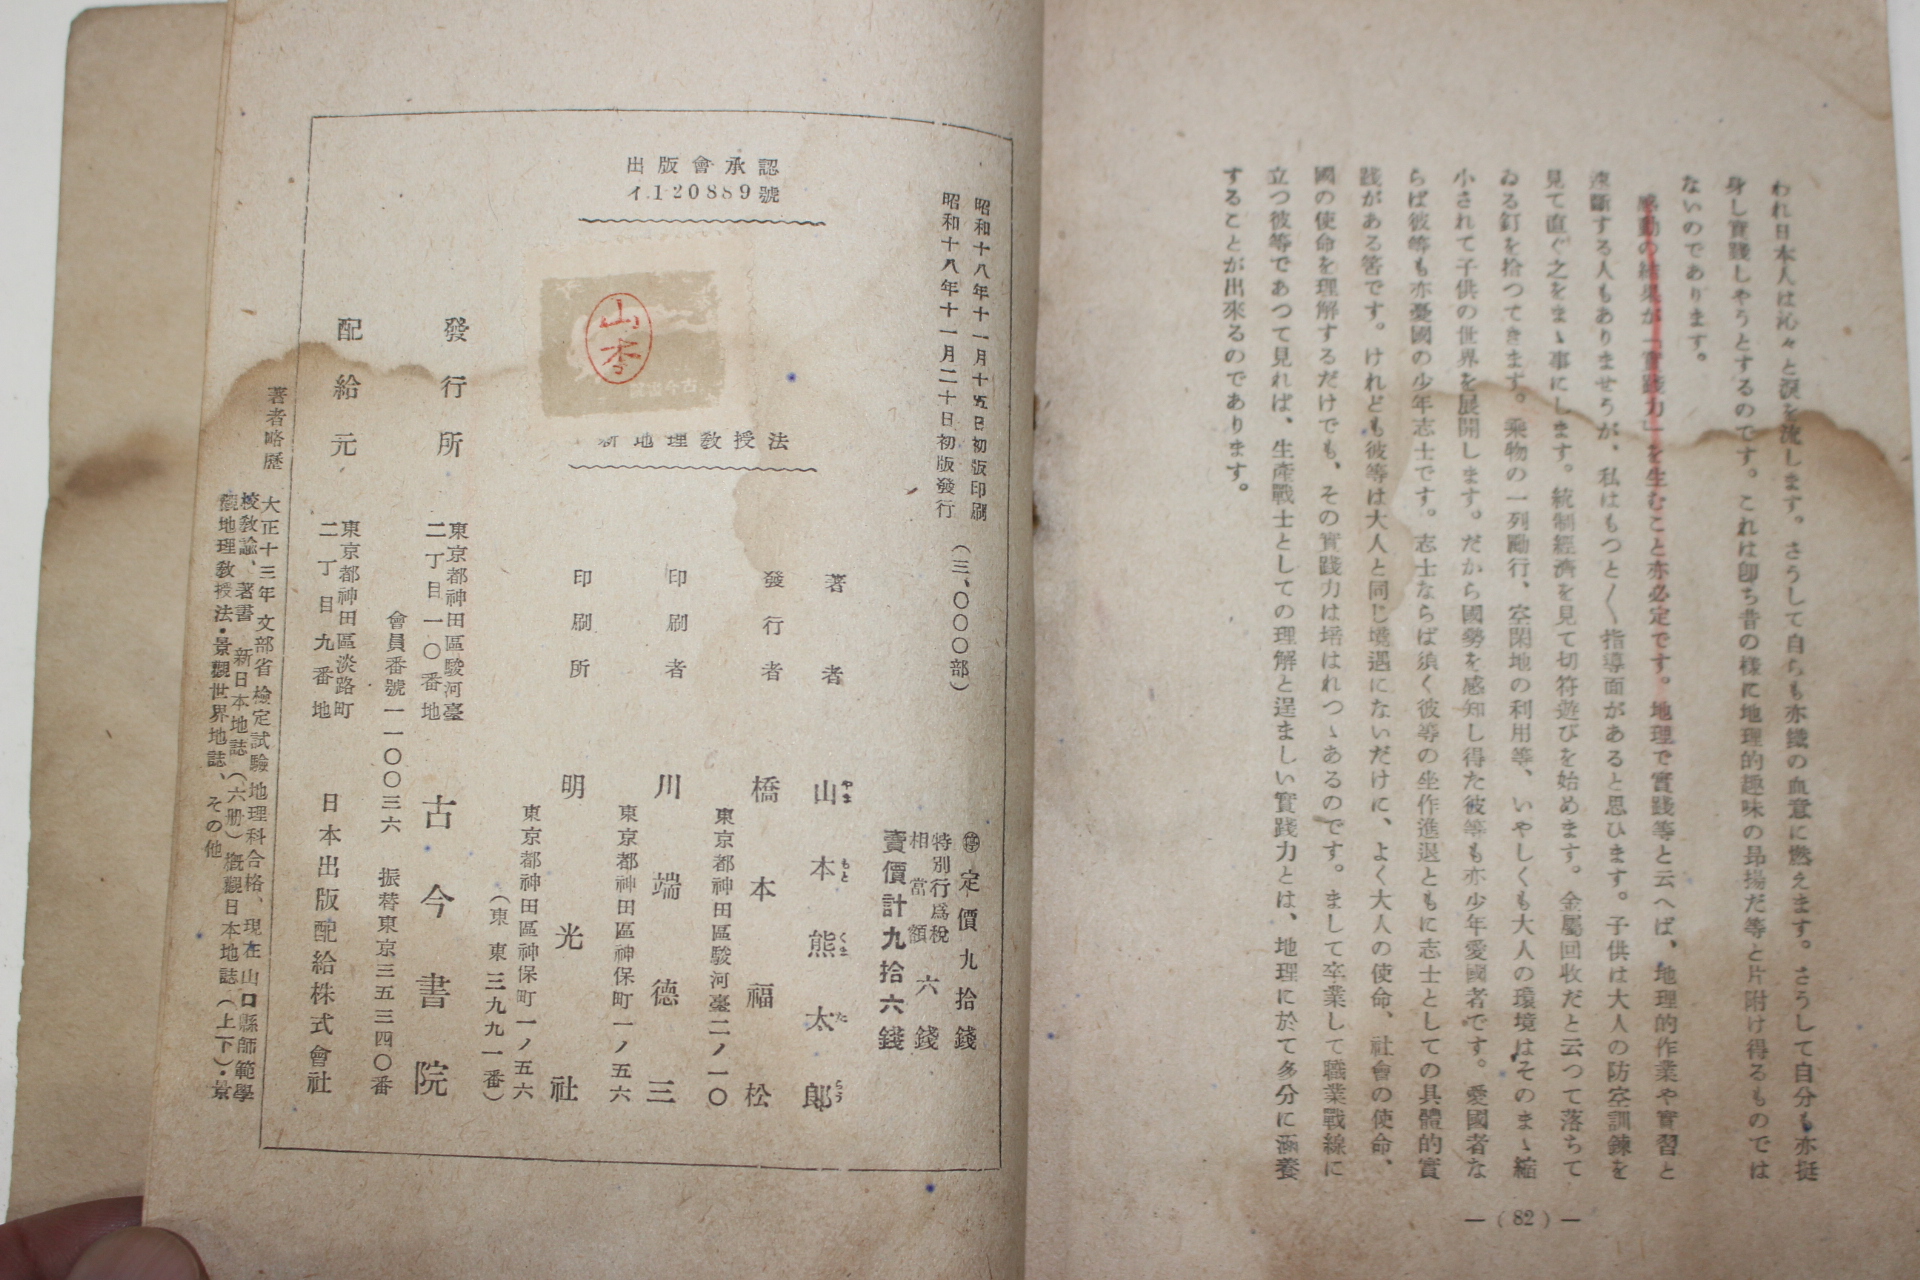 われ日本人は沁々と涙を流します。さうして自らも亦鐵の血意に燃えます。さうして自分も亦挺
身し實踐しやうとするのです。これは卽ち昔の樣に地理的趣味の昻揚だ等と片附け得るものでは
ないのであります。
感動の結果が「實踐力」を生むこと亦必定です。地理で實踐等と云へば、地理的作業や實習と
速斷する人もありませうが、私はもつと〱指導面があると思ひます。子供は大人の防空訓練を
見て直ぐ之をまゝ事にします。統制經濟を見て切符遊びを始めます。金屬回收だと云つて落ちて
ゐる釘を拾つてきます。乘物の一列勵行、空閑地の利用等、いやしくも大人の環境はそのまゝ縮
小されて子供の世界を展開します。だから國勢を感知し得た彼等も亦少年愛國者です。愛國者な
らば彼等も亦憂國の少年志士です。志士ならば須く彼等の坐作進退ともに志士としての具體的實
踐がある筈です。けれども彼等は大人と同じ境遇にないだけに、よく大人の使命、社會の使命、
國の使命を理解するだけでも、その實踐力は培はれつゝあるのです。まして卒業して職業戰線に
立つ彼等であつて見れば、生產戰士としての理解と逞ましい實踐力とは、地理に於て多分に涵養
することが出來るのであります。
―（82）―
昭和十八年十一月十五日初版印刷
昭和十八年十一月二十日初版發行
（三、〇〇〇部）
㊕定價九拾錢
特別行爲稅
相當額
六錢
賣價計九拾六錢
出版會承認
イ.120889號
山本
古今書院
新地理教授法
著者
山本熊太郎
やまもとくまたらう
發行者
橋本福松
東京都神田區駿河臺二ノ一〇
印刷者
川端德三
東京都神田區神保町一ノ五六
印刷所
明光社
東京都神田區神保町一ノ五六
（東東三九九一番）
發行所
東京都神田區駿河臺
二丁目一〇番地
古今書院
會員番號一一〇〇三六
振替東京三五三四〇番
配給元
東京都神田區淡路町
二丁目九番地
日本出版配給株式會社
著者略歷
大正十三年文部省檢定試驗地理科合格、現在山口縣師範學
校敎諭、著書　新日本地誌（六册）槪觀日本地誌（上下）・景
觀地理敎授法・景觀世界地誌、その他